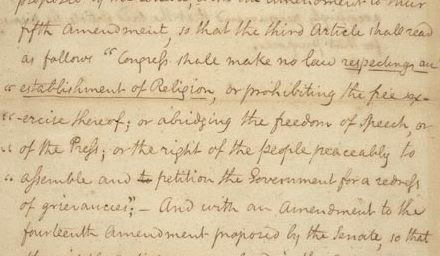 fifth Amendment, so that the third Article shall read
as follows "Congress shall make no law respecting an
" establishment of Religion, or prohibiting the free ex-
" -ercise thereof; or abridging the freedom of Speech, or
" of the Press; or the right of the people peaceably to
" assemble and to petition the Government for a redress
of grievances"; – And with an Amendment to the
fourteenth Amendment proposed by the Senate, so that